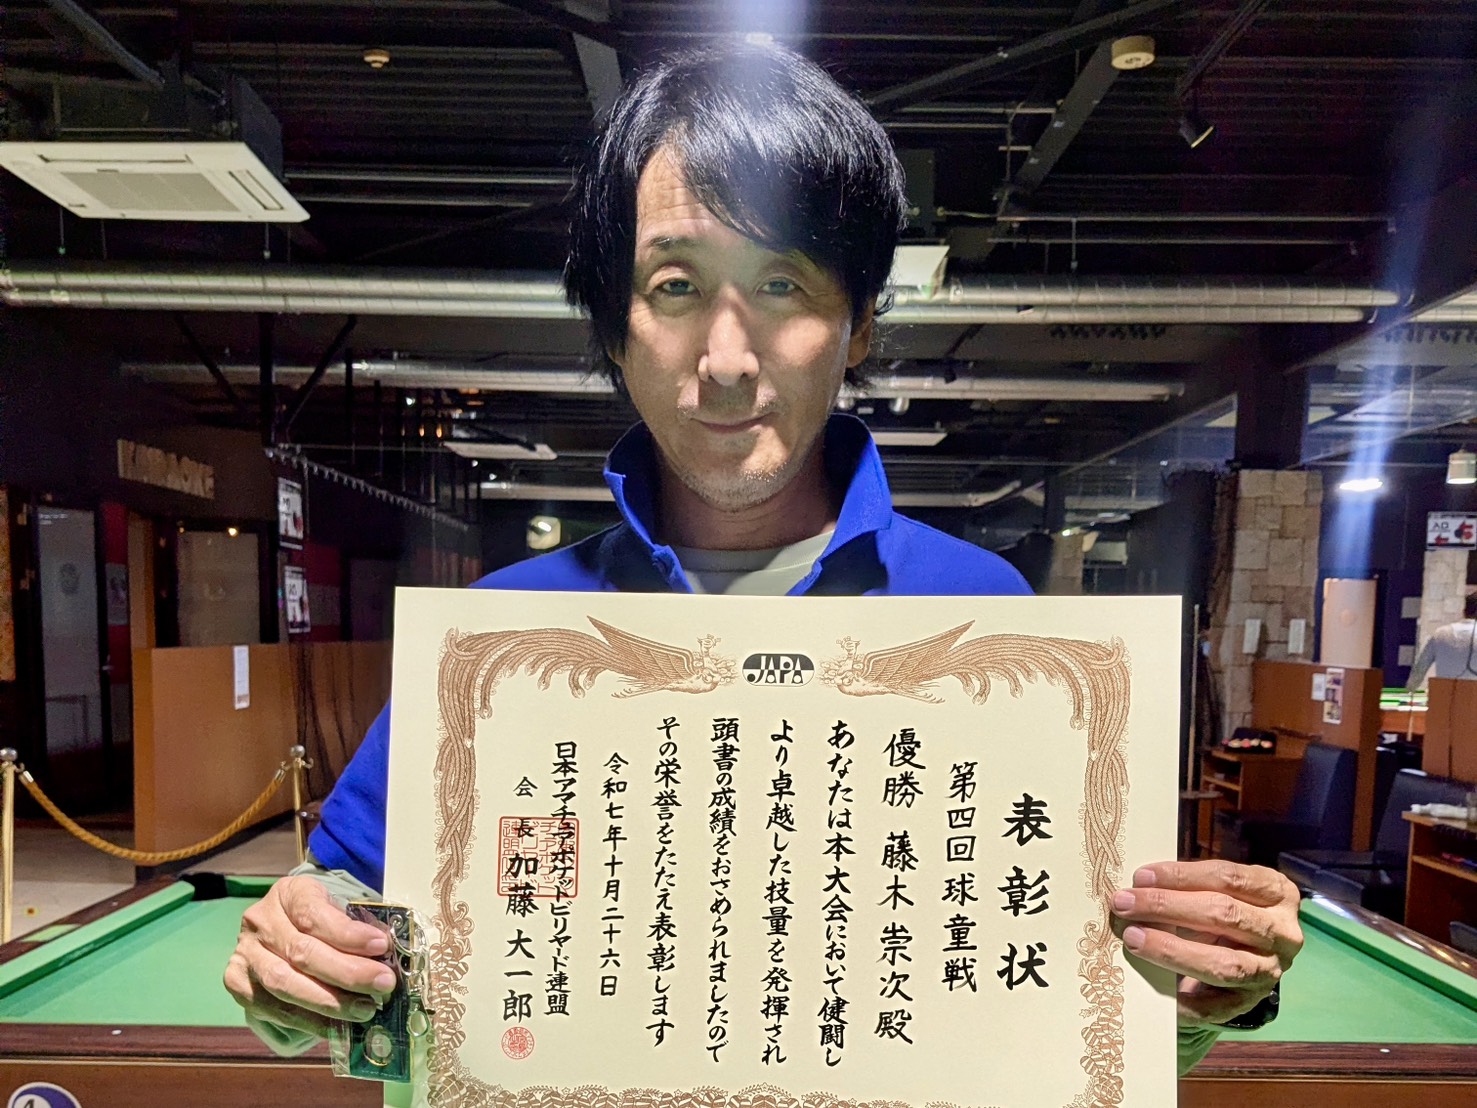 JAPA
表彰状
第四回球童戦
優勝 藤木崇次殿
あなたは本大会において健闘し
より卓越した技量を発揮され
頭書の成績をおさめられましたので
その栄誉をたたえ表彰します
令和七年十月二十六日
日本アマチュアポケットビリヤード連盟
会長 加藤大一郎
KARAOKE
入口